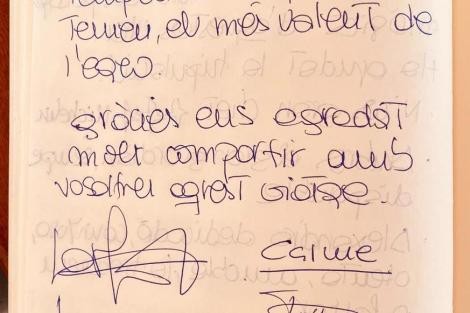 Temeu, el més valent de
l'equ.
gràcies ens agradat
molt compartir amb
vosaltres agest viatge.
Carme